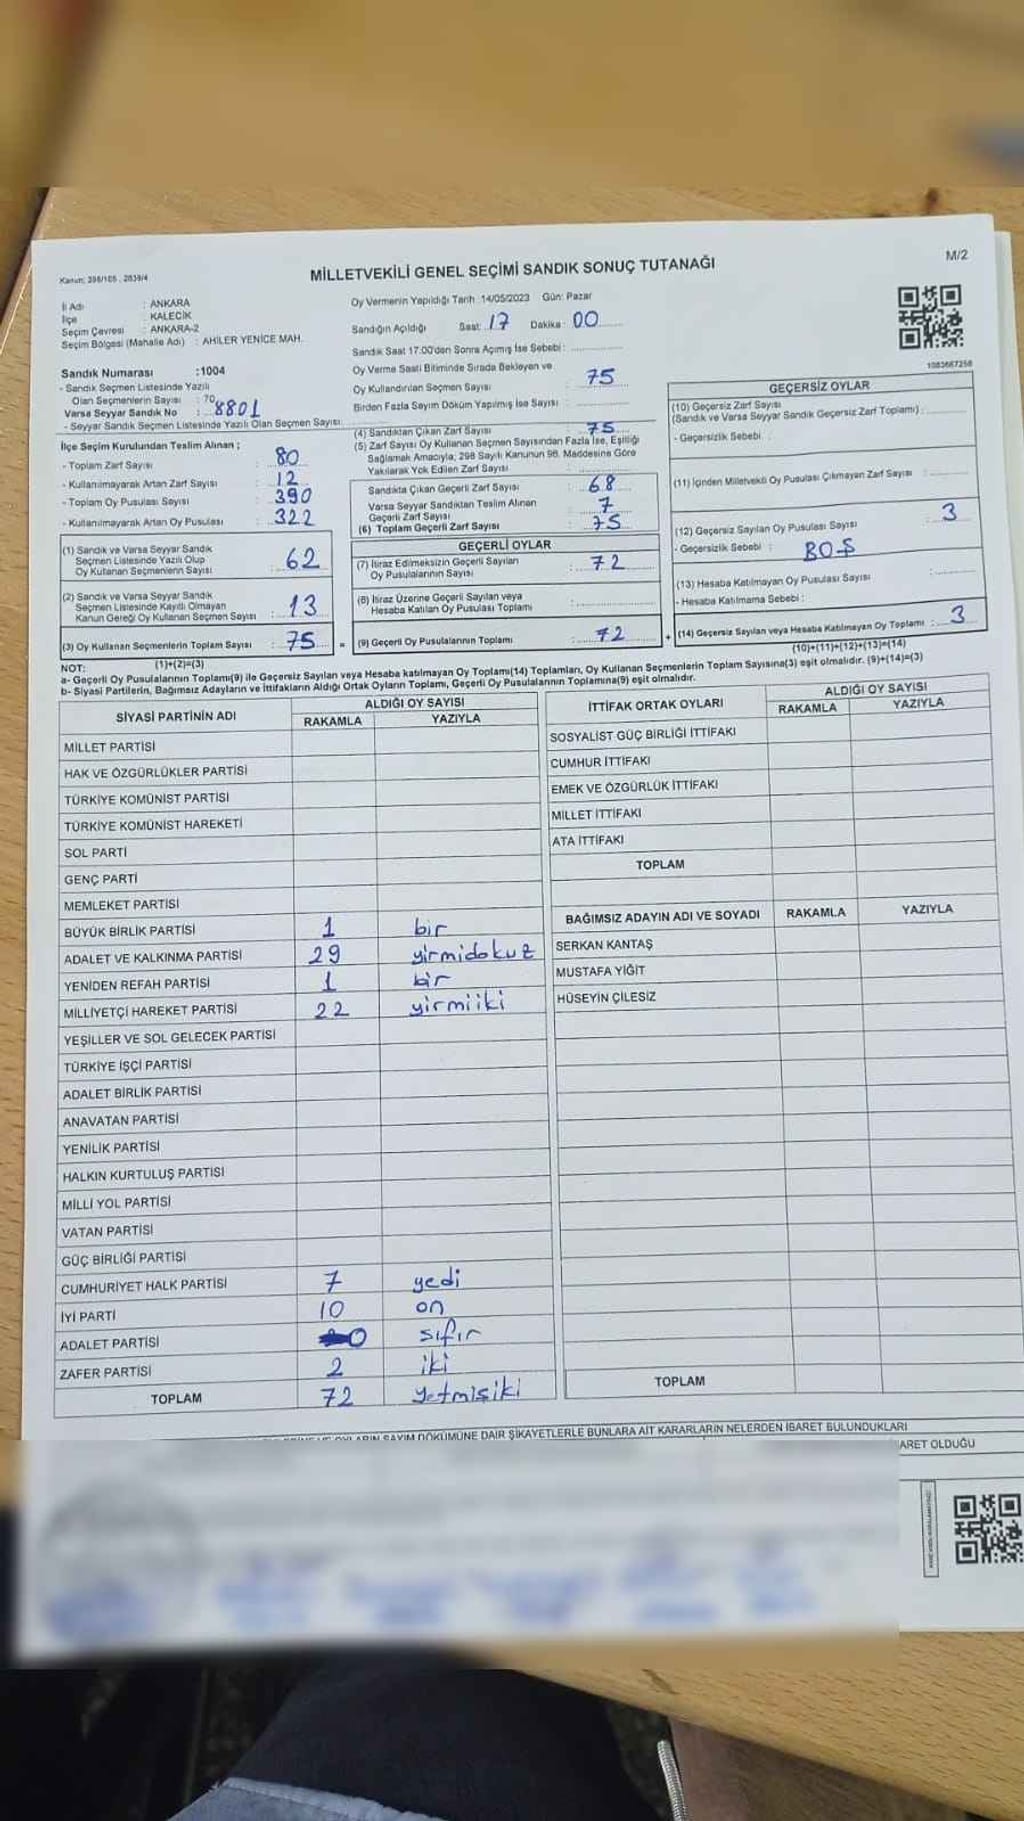 M/2
Kanun: 298/105 , 2839/4
MİLLETVEKİLİ GENEL SEÇİMİ SANDIK SONUÇ TUTANAĞI
İl Adı : ANKARA
İlçe : KALECİK
Seçim Çevresi : ANKARA-2
Seçim Bölgesi (Mahalle Adı) : AHİLER YENİCE MAH.
Oy Vermenin Yapıldığı Tarih :14/05/2023 Gün: Pazar
Sandığın Açıldığı Saat: 17 Dakika: 00
Sandık Saat 17.00'den Sonra Açılmış İse Sebebi:
Oy Verme Saati Bitiminde Sırada Bekleyen ve
Oy Kullandırılan Seçmen Sayısı : 75
Birden Fazla Sayım Döküm Yapılmış İse Sayısı :
Sandık Numarası :1004
- Sandık Seçmen Listesinde Yazılı
Olan Seçmenlerin Sayısı : 70
Varsa Seyyar Sandık No : 8801
- Seyyar Sandık Seçmen Listesinde Yazılı Olan Seçmen Sayısı:
İlçe Seçim Kurulundan Teslim Alınan ;
- Toplam Zarf Sayısı : 80
- Kullanılmayarak Artan Zarf Sayısı : 12
- Toplam Oy Pusulası Sayısı : 390
- Kullanılmayarak Artan Oy Pusulası : 322
(1) Sandık ve Varsa Seyyar Sandık
Seçmen Listesinde Yazılı Olup
Oy Kullanan Seçmenlerin Sayısı : 62
(2) Sandık ve Varsa Seyyar Sandık
Seçmen Listesinde Kayıtlı Olmayan
Kanun Gereği Oy Kullanan Seçmen Sayısı : 13
(3) Oy Kullanan Seçmenlerin Toplam Sayısı : 75 =
(1)+(2)=(3)
(4) Sandıktan Çıkan Zarf Sayısı : 75
(5) Zarf Sayısı Oy Kullanan Seçmen Sayısından Fazla İse, Eşitliği
Sağlamak Amacıyla; 298 Sayılı Kanunun 98. Maddesine Göre
Yakılarak Yok Edilen Zarf Sayısı :
Sandıkta Çıkan Geçerli Zarf Sayısı : 68
Varsa Seyyar Sandıktan Teslim Alınan
Geçerli Zarf Sayısı : 7
(6) Toplam Geçerli Zarf Sayısı : 75
GEÇERLİ OYLAR
(7) İtiraz Edilmeksizin Geçerli Sayılan
Oy Pusulalarının Sayısı : 72
(8) İtiraz Üzerine Geçerli Sayılan veya
Hesaba Katılan Oy Pusulası Toplamı :
(9) Geçerli Oy Pusulalarının Toplamı : 72 +
1083667258
GEÇERSİZ OYLAR
(10) Geçersiz Zarf Sayısı
(Sandık ve Varsa Seyyar Sandık Geçersiz Zarf Toplamı) :
- Geçersizlik Sebebi :
(11) İçinden Milletvekili Oy Pusulası Çıkmayan Zarf Sayısı :
(12) Geçersiz Sayılan Oy Pusulası Sayısı : 3
- Geçersizlik Sebebi : BOŞ
(13) Hesaba Katılmayan Oy Pusulası Sayısı :
- Hesaba Katılmama Sebebi :
(14) Geçersiz Sayılan veya Hesaba Katılmayan Oy Toplamı : 3
(10)+(11)+(12)+(13)=(14)
NOT:
a- Geçerli Oy Pusulalarının Toplamı(9) ile Geçersiz Sayılan veya Hesaba katılmayan Oy Toplamı(14) Toplamları, Oy Kullanan Seçmenlerin Toplam Sayısına(3) eşit olmalıdır. (9)+(14)=(3)
b- Siyasi Partilerin, Bağımsız Adayların ve İttifakların Aldığı Ortak Oyların Toplamı, Geçerli Oy Pusulalarının Toplamına(9) eşit olmalıdır.
SİYASİ PARTİNİN ADI ALDIĞI OY SAYISI
RAKAMLA YAZIYLA
MİLLET PARTİSİ
HAK VE ÖZGÜRLÜKLER PARTİSİ
TÜRKİYE KOMÜNİST PARTİSİ
TÜRKİYE KOMÜNİST HAREKETİ
SOL PARTİ
GENÇ PARTİ
MEMLEKET PARTİSİ
BÜYÜK BİRLİK PARTİSİ 1 bir
ADALET VE KALKINMA PARTİSİ 29 yirmidokuz
YENİDEN REFAH PARTİSİ 1 bir
MİLLİYETÇİ HAREKET PARTİSİ 22 yirmiiki
YEŞİLLER VE SOL GELECEK PARTİSİ
TÜRKİYE İŞÇİ PARTİSİ
ADALET BİRLİK PARTİSİ
ANAVATAN PARTİSİ
YENİLİK PARTİSİ
HALKIN KURTULUŞ PARTİSİ
MİLLİ YOL PARTİSİ
VATAN PARTİSİ
GÜÇ BİRLİĞİ PARTİSİ
CUMHURİYET HALK PARTİSİ 7 yedi
İYİ PARTİ 10 on
ADALET PARTİSİ 0 sıfır
ZAFER PARTİSİ 2 iki
TOPLAM 72 yetmişiki
İTTİFAK ORTAK OYLARI ALDIĞI OY SAYISI
RAKAMLA YAZIYLA
SOSYALİST GÜÇ BİRLİĞİ İTTİFAKI
CUMHUR İTTİFAKI
EMEK VE ÖZGÜRLÜK İTTİFAKI
MİLLET İTTİFAKI
ATA İTTİFAKI
TOPLAM
BAĞIMSIZ ADAYIN ADI VE SOYADI RAKAMLA YAZIYLA
SERKAN KANTAŞ
MUSTAFA YİĞİT
HÜSEYİN ÇİLESİZ
TOPLAM
SAYIM DÖKÜMÜNE DAİR ŞİKAYETLERLE BUNLARA AİT KARARLARIN NELERDEN İBARET BULUNDUKLARI
OLDUĞU